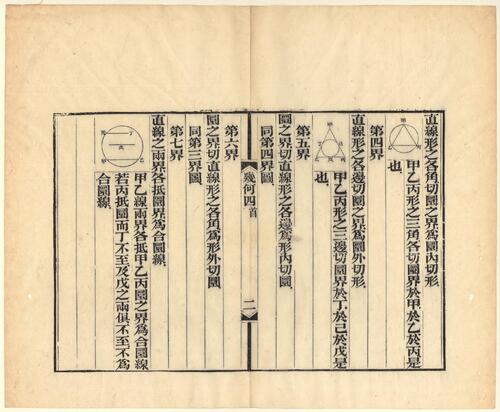 直線形之各角切圜之界爲圜內切形
甲乙丙形之三角各切圜界於甲於乙於丙是
也
第四界
直線形之各邊切圜之界爲圜外切形
甲乙丙形之三邊切圜界於丁於己於戊是
也
第五界
圜之界切直線形之各邊爲形內切圜
同第四界圖
幾何四首
二
第六界
圜之界切直線形之各角爲形外切圜
同第三界圖
第七界
直線之兩界各抵圜界爲合圜線
甲乙線兩界各抵甲乙丙圜之界爲合圜線
若丙抵圜而丁不至及戊之兩俱不至不爲
合圜線